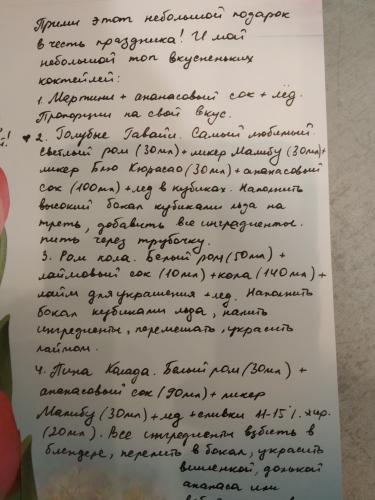 Прими этот небольшой подарок
в честь праздника! И мой
небольшой топ вкусненьких
коктейлей:
1. Мартини + ананасовый сок + лёд.
Пропорции на свой вкус.
♥2. Голубые Гавайи. Самый любимый.
Светлый ром (30мл) + ликер Малибу (30мл)+
ликер Блю Кюрасао (30мл) + ананасовый
сок (100мл) + лед в кубиках. Наполнить
высокий бокал кубиками льда на
треть, добавить все ингредиенты.
пить через трубочку.
3. Ром кола. Белый ром (50мл) +
лаймовый сок (10мл) + кола (140мл) +
лайм для украшения + лед. Наполнить
бокал кубиками льда, налить
ингредиенты, перемешать, украсить
лаймом.
4. Пина Колада. Белый ром (30мл) +
ананасовый сок (90мл) + ликер
Малибу (30мл) + лед + сливки 11-15%. жир.
(20мл). Все ингредиенты взбить в
блендере, перелить в бокал, украсить
вишенкой, долькой
ананаса или